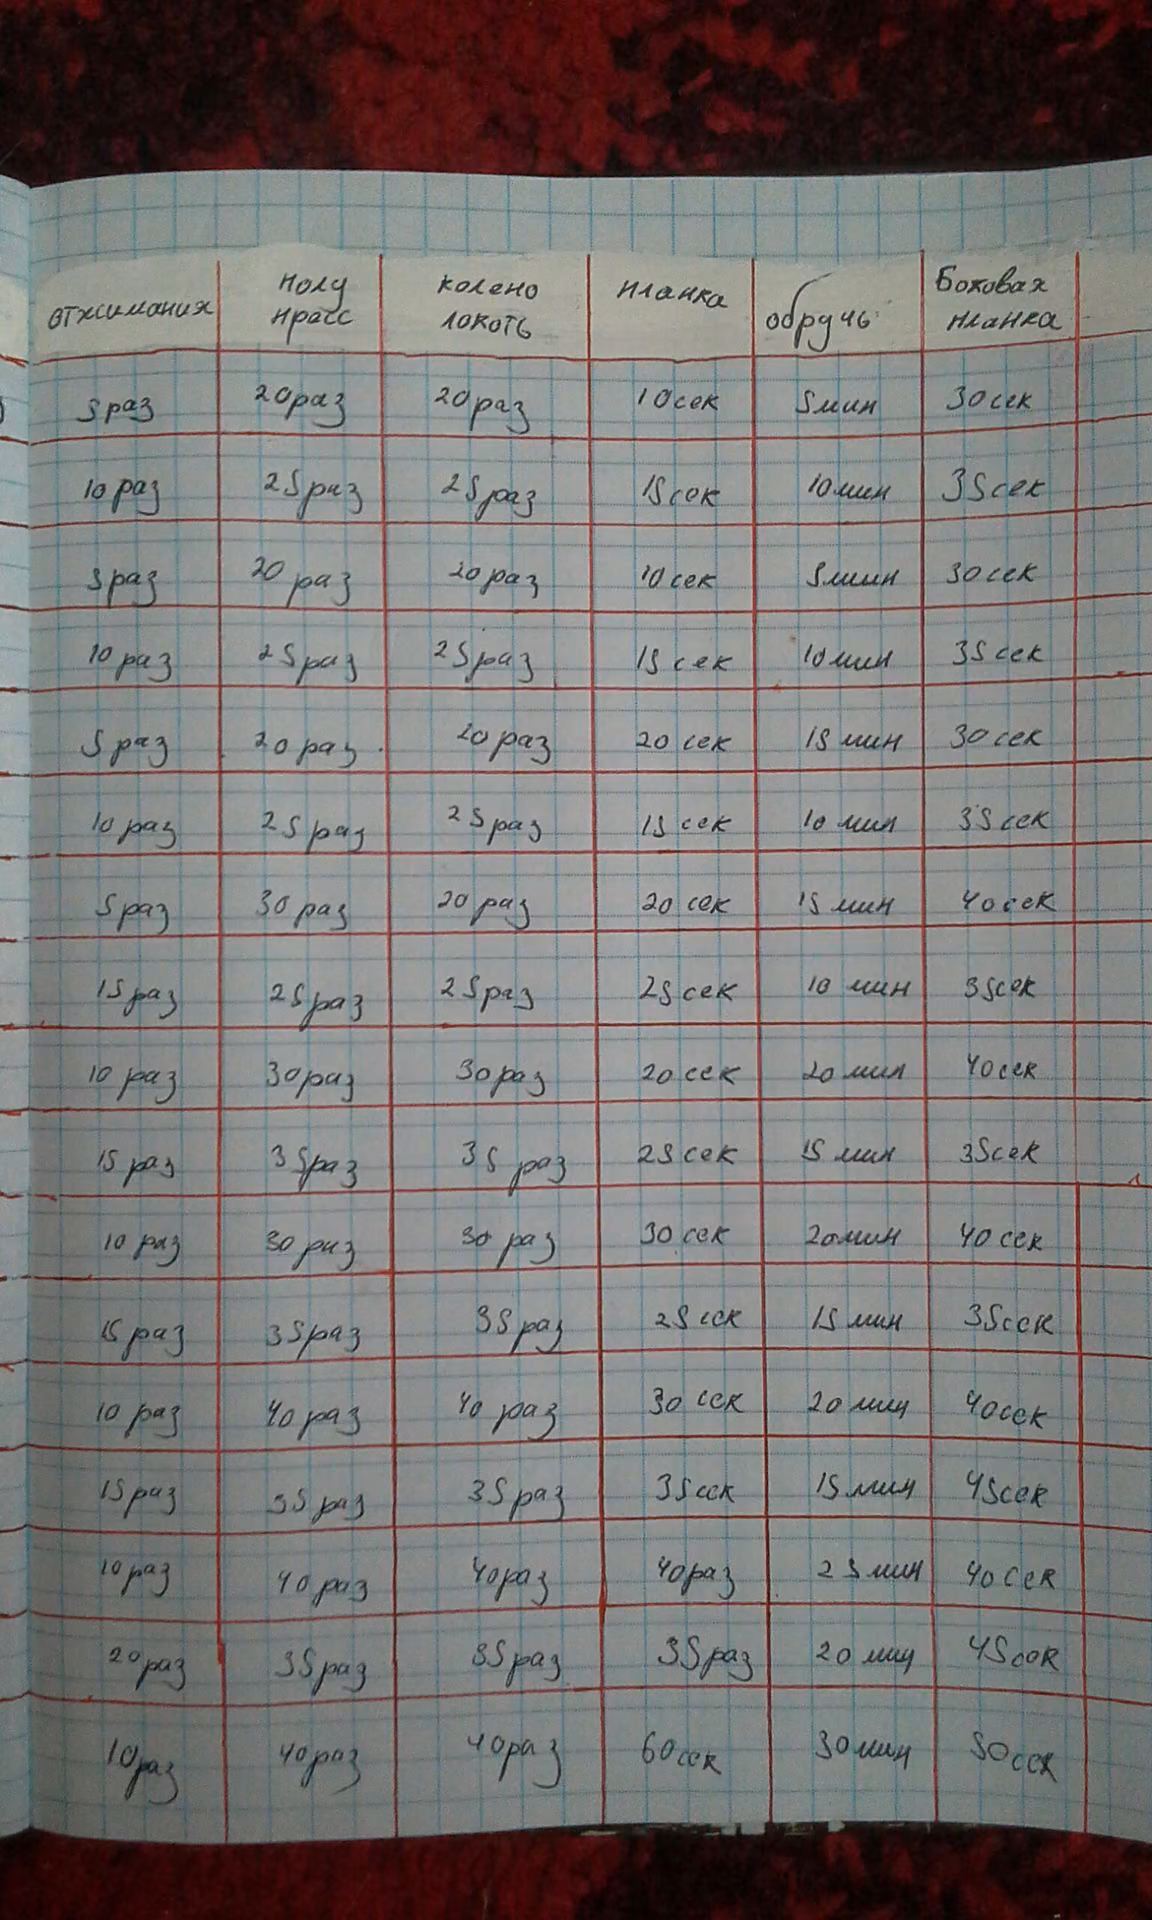 отжимания полу пресс колено локоть планка обручь Боковая планка
5раз 20раз 20раз 10сек 5мин 30сек
10раз 25раз 25раз 15сек 10мин 35сек
5раз 20раз 20раз 10сек 5мин 30сек
10раз 25раз 25раз 15сек 10мин 35сек
5раз 20раз 20раз 20сек 15мин 30сек
10раз 25раз 25раз 15сек 10мин 35сек
5раз 30раз 20раз 20сек 15мин 40сек
15раз 25раз 25раз 25сек 10мин 35сек
10раз 30раз 30раз 20сек 20мин 40сек
15раз 35раз 35раз 25сек 15мин 35сек
10раз 30раз 30раз 30сек 20мин 40сек
15раз 35раз 35раз 25сек 15мин 35сек
10раз 40раз 40раз 30сек 20мин 40сек
15раз 35раз 35раз 35сек 15мин 45сек
10раз 40раз 40раз 40раз 25мин 40сек
20раз 35раз 35раз 35раз 20мин 45сек
10раз 40раз 40раз 60сек 30мин 50сек